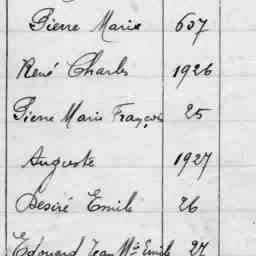 Pierre Marie 607
René Charles 1926
Pierre Marie François 25
Auguste 1927
Desiré Emile 26
Edouard Jean Mie Emile 27